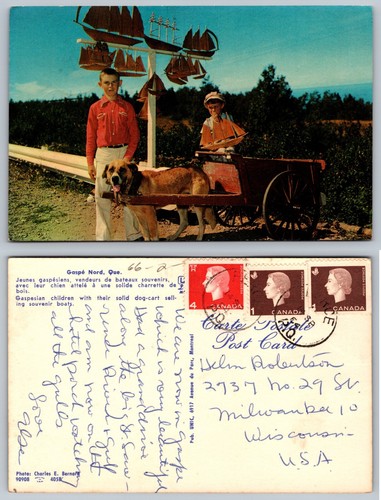 66-2
Gaspé Nord, Que.
Jeunes gaspésiens, vendeurs de bateaux souvenirs,
avec leur chien attelé à une solide charrette de
bois.
Gaspesian children with their solid dog-cart sell-
ing souvenir boats.
We are now in Gaspe
which is very beautiful
along the big St Law-
rence River & Gulf
and am now on
watching
all the gulls
Love
Photo: Charles E. Bernard
90908 4038
Pub. UNIC, 4917 Avenue du Parc, Montreal
4
CANADA
1
CANADA
1
CANADA
Carte Postale
Post Card
Helen Robertson
2737 No. 29 St.
Milwaukee 10
Wisconsin
U.S.A